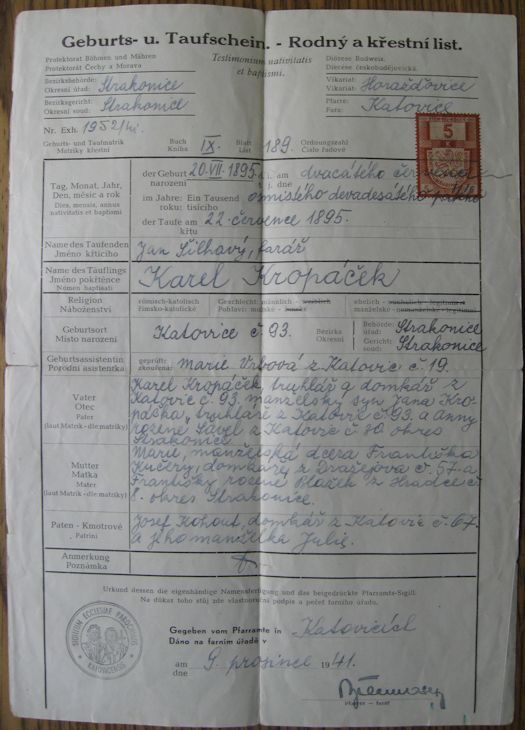 Geburts- u. Taufschein. - Rodný a křestní list.
Protektorat Böhmen und Mähren
Protektorát Čechy a Morava
Testimonium nativitatis
et baptismi.
Diözese Budweis.
Diecese českobudějovická.
Bezirksbehörde:
Okresní úřad: Strakonice
Bezirksgericht:
Okresní soud: Strakonice
Vikariat:
Vikariát: Horažďovice
Pfarre:
Fara: Katovice
Nr. Exh. 1952/41.
5
K
Geburts- und Taufmatrik
Matriky křestní
Buch
Kniha IX.
Blatt
List 189.
Ordnungszahl
Číslo řadové
Tag, Monat, Jahr,
Den, měsíc a rok
Dies, mensis, annus
nativitatis et baptismi
der Geburt 20.VII.1895 d. i. am dvacátého července
narození t. j. dne
im Jahre: Ein Tausend osmistého devadesátého pátého
roku: tisícího
der Taufe am 22. července 1895.
křtu
Name des Taufenden
Jméno křtícího
Jan Šilhavý, farář
Name des Täuflings
Jméno pokřtěnce
Nomen baptisati
Karel Kropáček
Religion
Náboženství
römisch-katolisch
římsko-katolické
Geschlecht: männlich - weiblich
Pohlaví: mužské - ženské
ehelich - unehelich - legitimiert
manželské - nemanželské - legitimní
Geburtsort
Místo narození
Katovice č. 93.
Bezirks
Okresní
Behörde:
úřad: Strakonice
Gericht:
soud: Strakonice
Geburtsassistentin
Porodní asistentka
geprüft:
zkoušená: Marie Vrbová z Katovic č. 19.
Vater
Otec
Pater
(laut Matrik - dle matriky)
Karel Kropáček, truhlář a domkář z
Katovic č. 93, manželský syn Jana Kro-
páčka, truhláře z Katovic č. 93 a Anny
rozené Sável z Katovic č. 80 okres
Strakonice.
Mutter
Matka
Mater
(laut Matrik - dle matriky)
Marie, manželská dcera Františka
Kučery, domkáře z Drašejova č. 57 a
Františky rozené Plaček z Hradce č.
8. okres Strakonice.
Paten - Kmotrové
Patrini
Josef Kohout, domkář z Katovic č. 67.
a jeho manželka Julie.
Anmerkung
Poznámka
Urkund dessen die eigenhändige Namensfertigung und das beigedrückte Pfarramts-Sigill.
Na důkaz toho stůj zde vlastnoruční podpis a pečeť farního úřadu.
SIGILLUM ECCLESIAE PAROCHIALIS
KATOVICENSIS
Gegeben vom Pfarramte in
Dáno na farním úřadě v Katovicích
am
dne 9. prosince 1941.
Pfarrer - farář